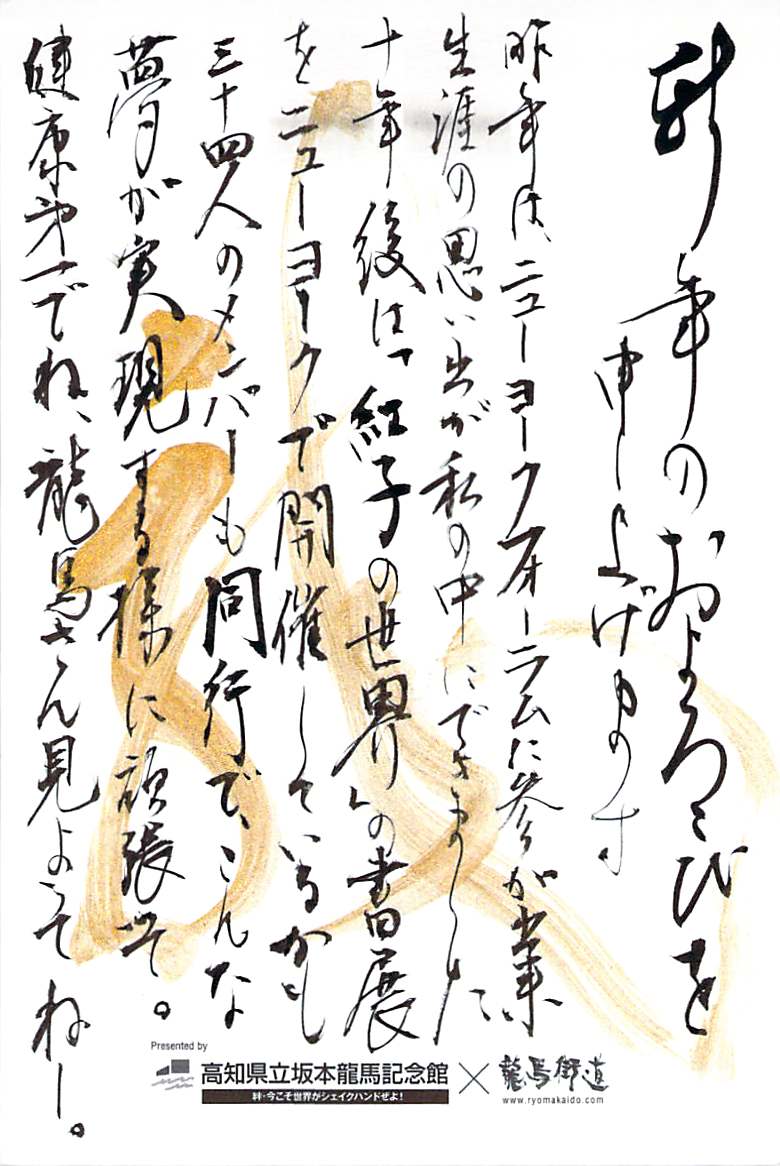 新年のおよろこびを
申し上げます
昨年は、ニューヨークフォーラムに参加出来
生涯の思い出が私の中にできました。
十年後は「紅子の世界」の書展
をニューヨークで開催しているかも
三十四人のメンバーも同行で、こんな
夢が実現する様に頑張って。
健康第一でね、龍馬さん見よってねー。
Presented by
高知県立坂本龍馬記念館
絆・今こそ世界がシェイクハンドぜよ!
×
龍馬街道
www.ryomakaido.com